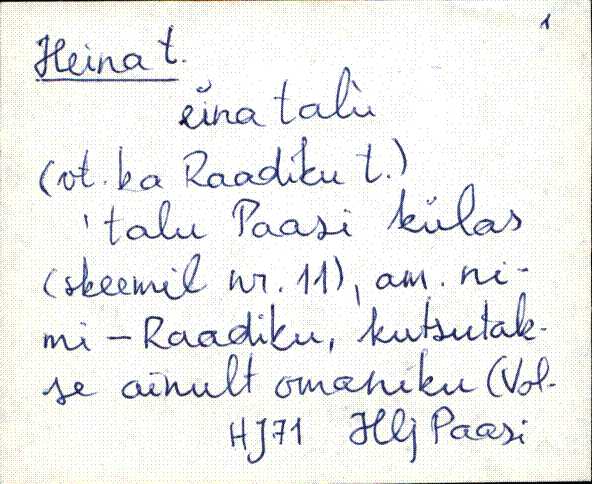 1
Heina t.
eina talu
(vt. ka Raadiku t.)
talu Paasi külas
(skeemil nr. 11), am. ni-
mi - Raadiku, kutsutak-
se ainult omaniku (Vol-
HJ71 Hlj Paasi